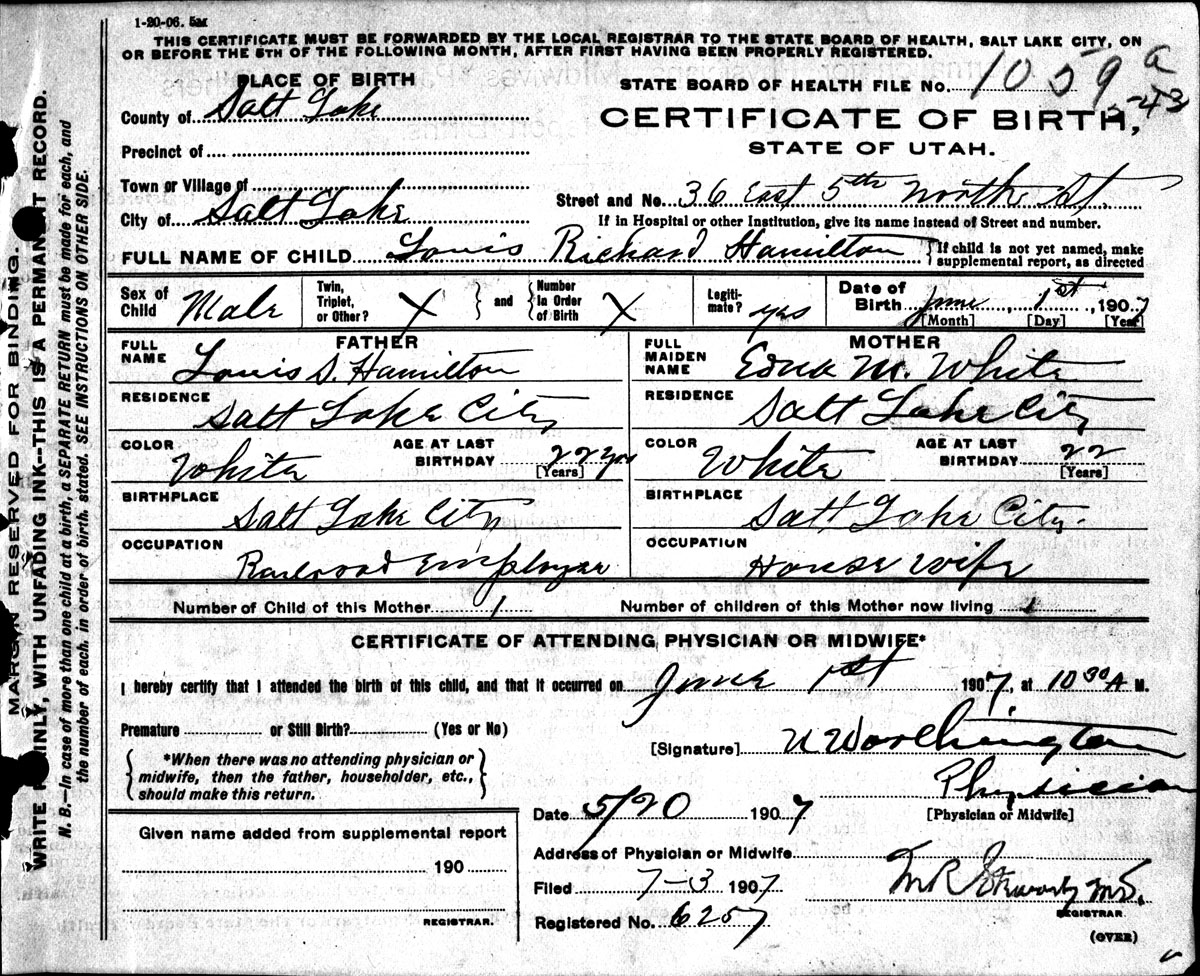 1-20-06. 5M
THIS CERTIFICATE MUST BE FORWARDED BY THE LOCAL REGISTRAR TO THE STATE BOARD OF HEALTH, SALT LAKE CITY, ON
OR BEFORE THE 5TH OF THE FOLLOWING MONTH, AFTER FIRST HAVING BEEN PROPERLY REGISTERED.
PLACE OF BIRTH
County of Salt Lake
Precinct of
Town or Village of
City of Salt Lake
STATE BOARD OF HEALTH FILE No. 1059 a
5-43
CERTIFICATE OF BIRTH,
STATE OF UTAH.
Street and No. 36 East 5th North St.
If in Hospital or other Institution, give its name instead of Street and number.
FULL NAME OF CHILD Louis Richard Hamilton {If child is not yet named, make
supplemental report, as directed
Sex of Child Male
Twin, Triplet, or Other? X } and { Number In Order of Birth X
Legitimate? yes
Date of Birth June 1st, 1907
[Month] [Day] [Year]
FATHER
FULL NAME Louis S. Hamilton
RESIDENCE Salt Lake City
COLOR White AGE AT LAST BIRTHDAY 22 yrs
[Years]
BIRTHPLACE Salt Lake City
OCCUPATION Railroad Employee
MOTHER
FULL MAIDEN NAME Edna M. White
RESIDENCE Salt Lake City
COLOR White AGE AT LAST BIRTHDAY 22
[Years]
BIRTHPLACE Salt Lake City.
OCCUPATION House wife
Number of Child of this Mother 1 Number of children of this Mother now living 1
CERTIFICATE OF ATTENDING PHYSICIAN OR MIDWIFE*
I hereby certify that I attended the birth of this child, and that it occurred on June 1st 1907, at 10 30 A M.
Premature or Still Birth? (Yes or No)
{*When there was no attending physician or
midwife, then the father, householder, etc.,
should make this return.}
[Signature] U Worthington
Physician
[Physician or Midwife]
Date 5/20 1907
Address of Physician or Midwife
Filed 7-3 1907
Registered No. 6257
REGISTRAR
(OVER)
Given name added from supplemental report
190
REGISTRAR.
MARGIN RESERVED FOR BINDING.
WRITE PLAINLY, WITH UNFADING INK—THIS IS A PERMANENT RECORD.
N. B.—In case of more than one child at a birth, a SEPARATE RETURN must be made for each, and
the number of each, in order of birth, stated. SEE INSTRUCTIONS ON OTHER SIDE.